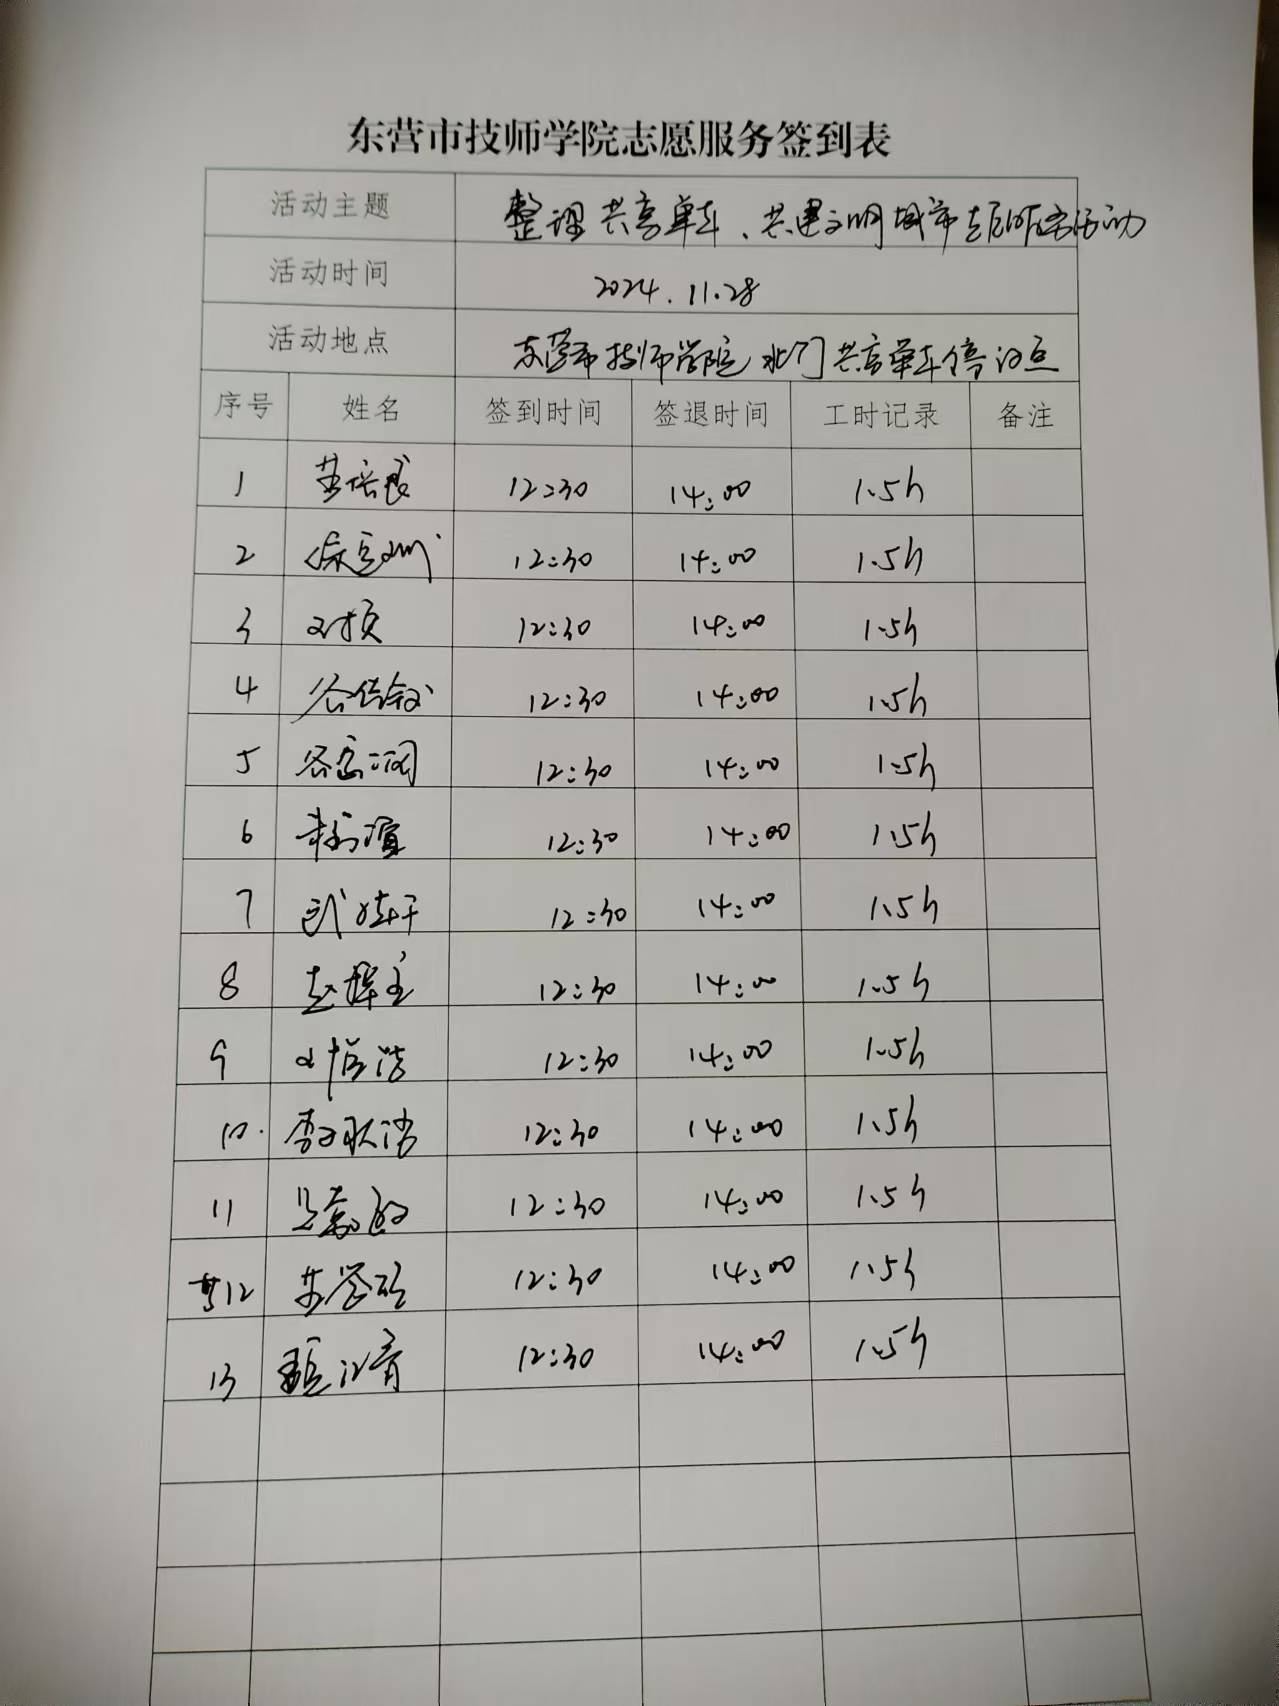 东营市技师学院志愿服务签到表
活动主题 整理共享单车、共建文明城市志愿服务活动
活动时间 2024.11.28
活动地点 东营市技师学院北门共享单车停放点
序号 姓名 签到时间 签退时间 工时记录 备注
1 12:30 14:00 1.5h
2 12:30 14:00 1.5h
3 12:30 14:00 1.5h
4 12:30 14:00 1.5h
5 12:30 14:00 1.5h
6 12:30 14:00 1.5h
7 12:30 14:00 1.5h
8 12:30 14:00 1.5h
9 12:30 14:00 1.5h
10. 12:30 14:00 1.5h
11 12:30 14:00 1.5h
12 12:30 14:00 1.5h
13 12:30 14:00 1.5h